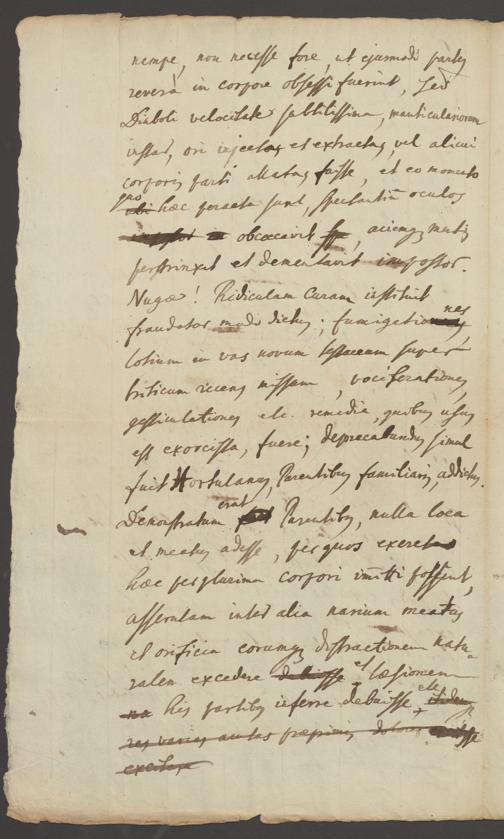 nempe, non necesse fore, ut ejusmodi partes
reverà in corpore obsessi fuerint, sed
Diaboli velocitate subtilissima, manticulariorum
instar, ori injectas et extractas, vel alicui
corporis parti allatas fuisse, et eo momento
quo haec peracta sunt, spectantium oculos
obcaecavit, aciemque mentis
perstrinxit et dementavit impostor.
Nugae! Ridiculam curam instituit
fraudator modo dictus; fumigationes
lotium in vas novum testaceum super
triticum recens missum, vociferationes,
gesticulationes etc. remedia, quibus usus
est exorcista, fuere; deprecabundus simul
fuit Hortulanus, Parentibus familiaris, addictus.
Demonstratum erat Parentibus, nulla loca
et meatus adesse, per quos exereta
haec per plurima corpori imitti possent,
asserulam inter alia narium meatus
et orificia eorumque distractionem natu-
ralem excedere debuisse et laesionem
his partibus inferre debuisse etc
res varias dolores